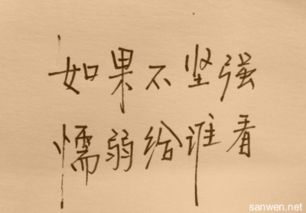 如果不坚强
懦弱给谁看
sanwen.net